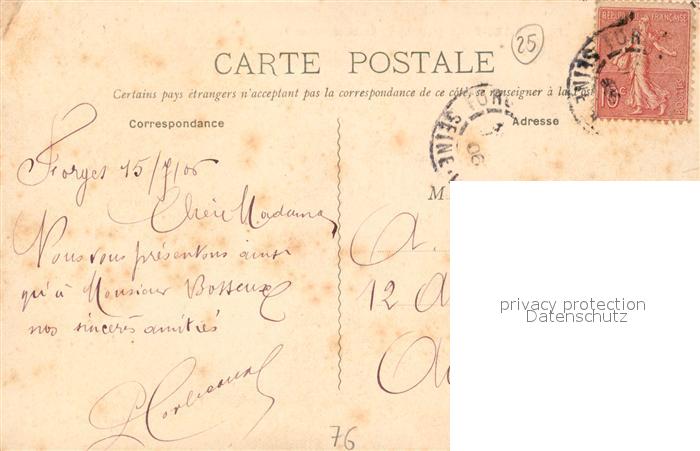 25
REPUBLIQUE FRANÇAISE
10 c
POSTES
CARTE POSTALE
Certains pays étrangers n'acceptant pas la correspondance de ce côté, se renseigner à la Poste
Correspondance
Adresse
FORG
SEINE
06
FOR
SEINE
Forges 15/7/06
Chère Madame
Nous vous présentons ainsi
qu'à Monsieur Bosseux
nos sincères amitiés
M
A.
12
privacy protection
Datenschutz
76